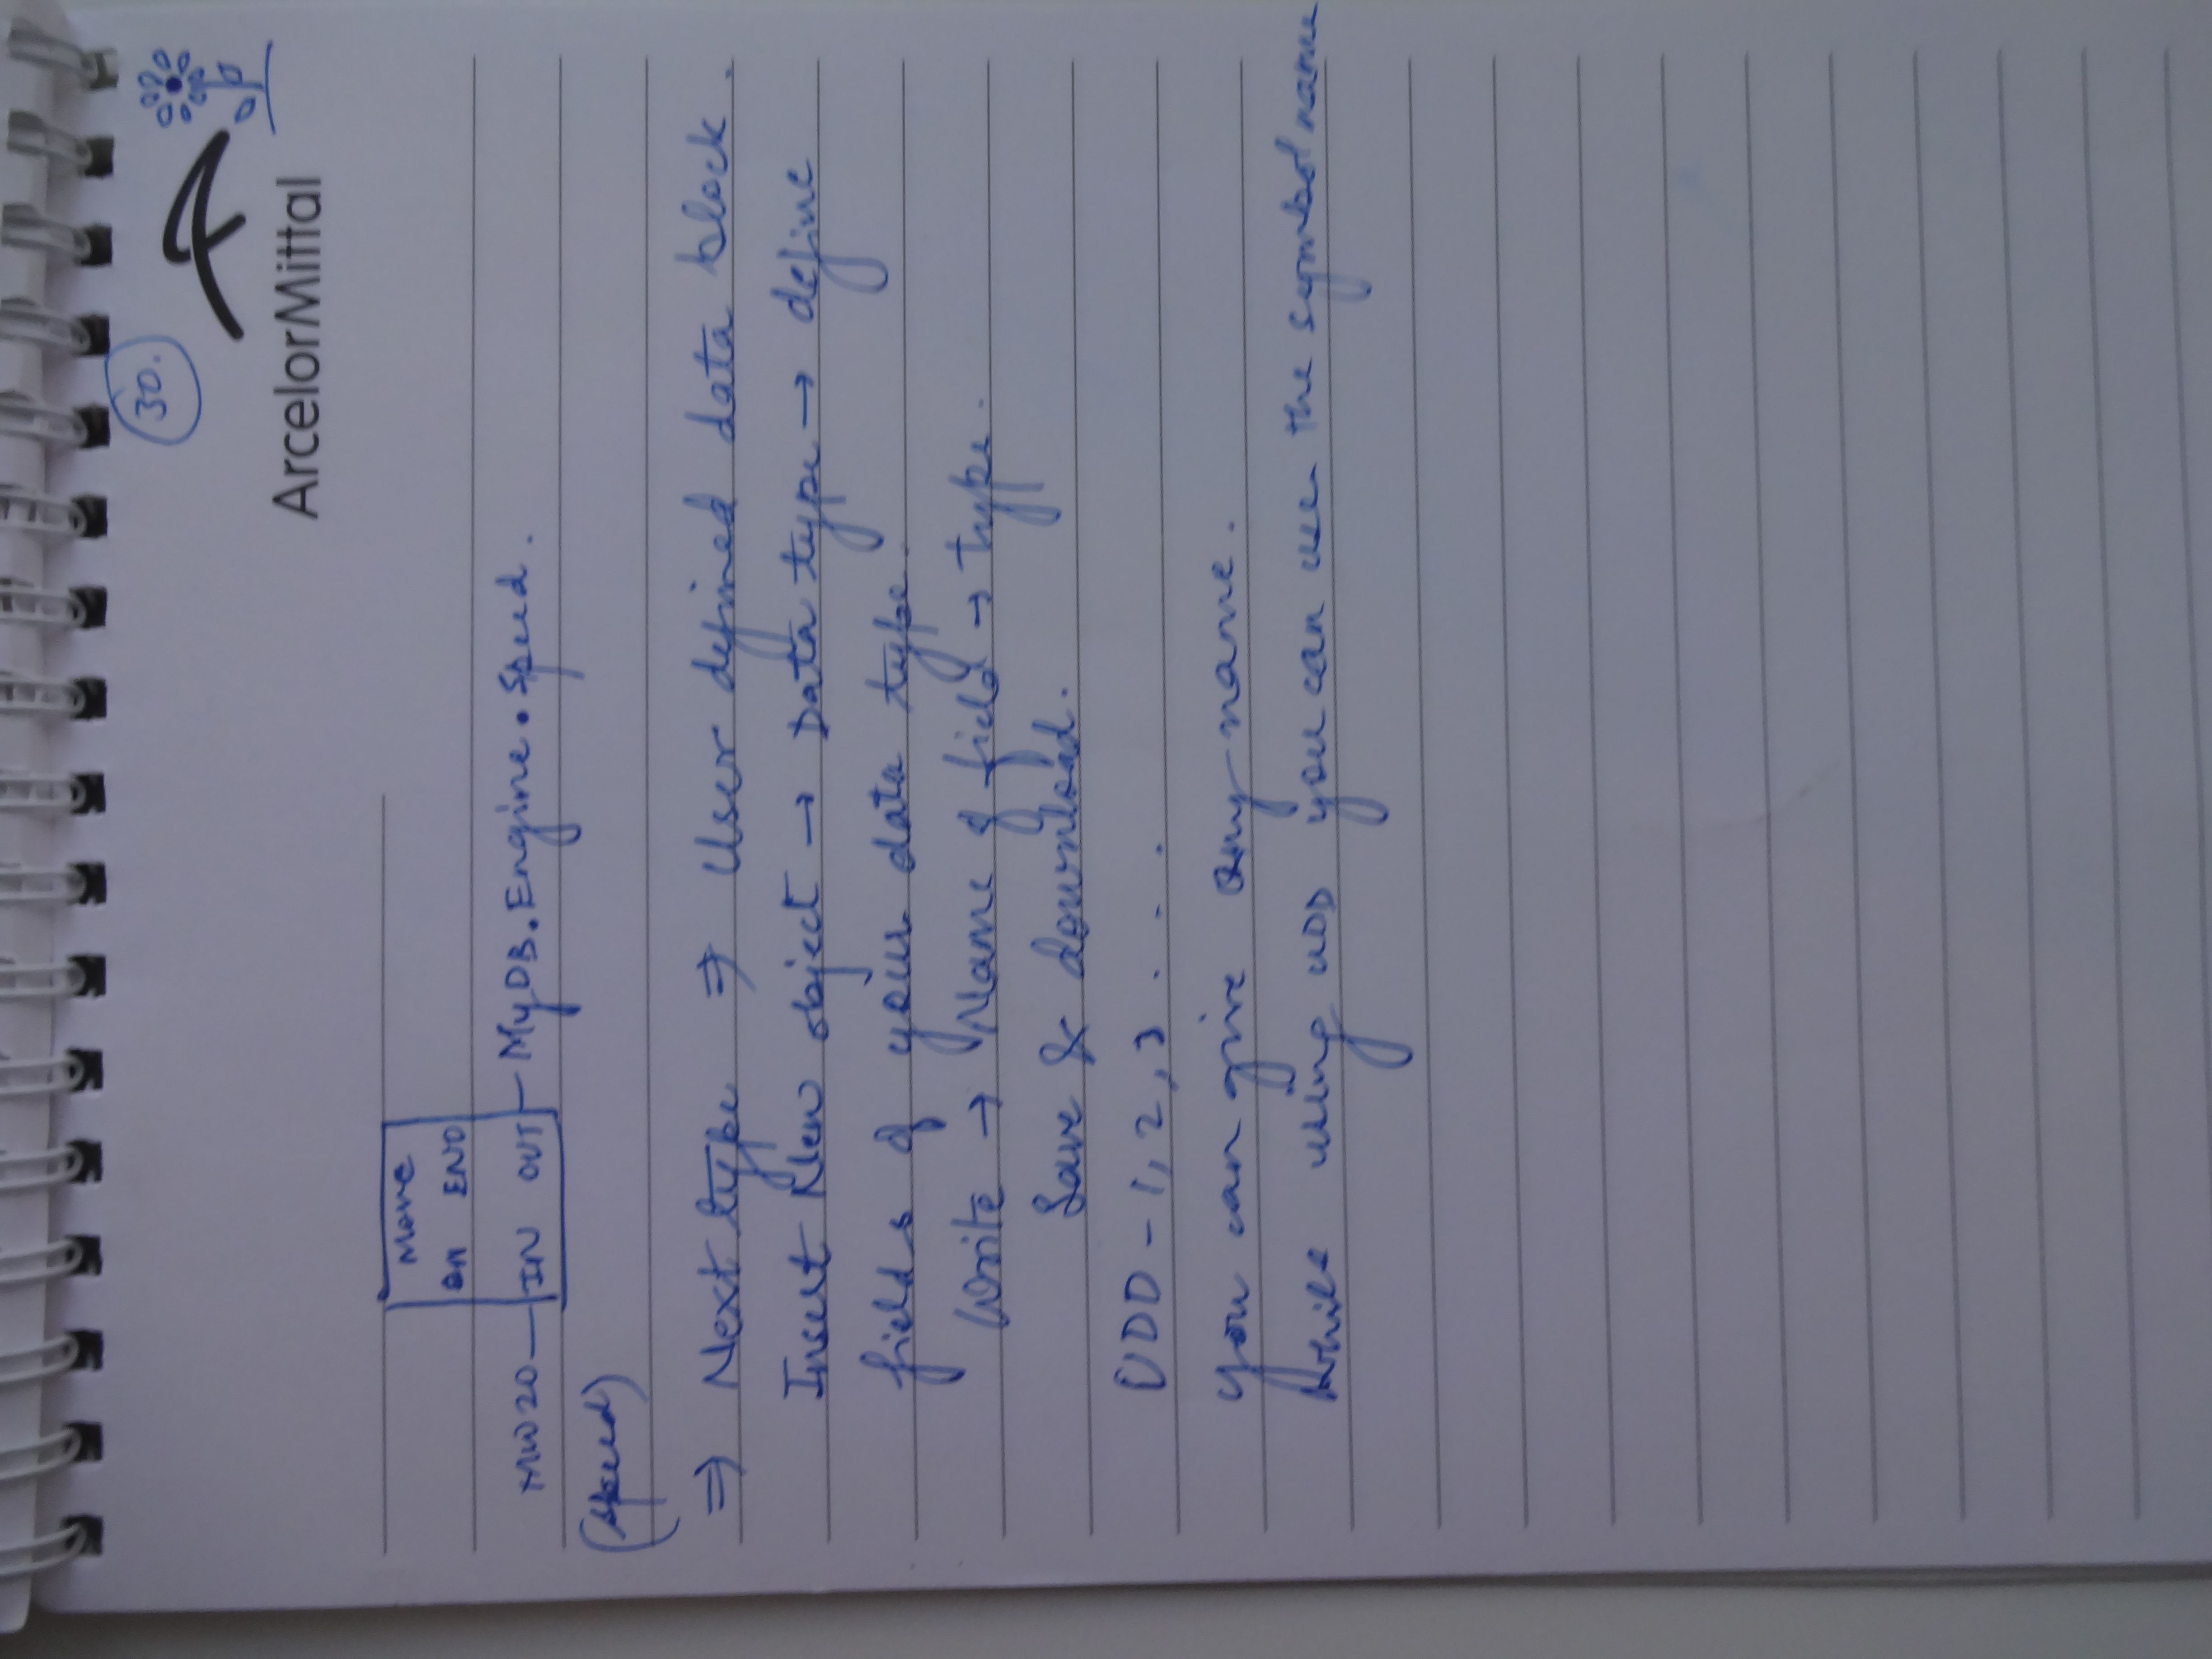 30.
ArcelorMittal
Move
EN ENO
MW20 IN OUT MyDB.Engine.Speed.
(Speed)
⇒ Next type ⇒ User defined data block.
Insert New object → Data type → define
fields of your data type.
Write → Name of field → type.
Save & download.
UDD - 1, 2, 3 . . .
You can give any name.
While using UDD you can use the symbol name